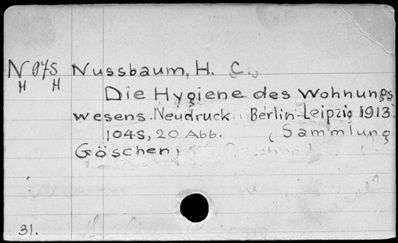 N 875 Nussbaum, H. C.
H H Die Hygiene des Wohnungs
wesens. Neudruck Berlin-Leipzig 1913.
104S, 20 Abb. (Sammlung
Göschen)
31.